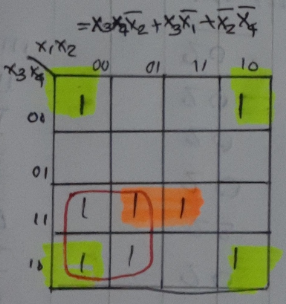 = x₃x₄x̄₂ + x₃x̄₁ + x̄₂x̄₄
x₁x₂
x₃x₄ 00 01 11 10
00 1 1
01
11 1 1 1
10 1 1 1